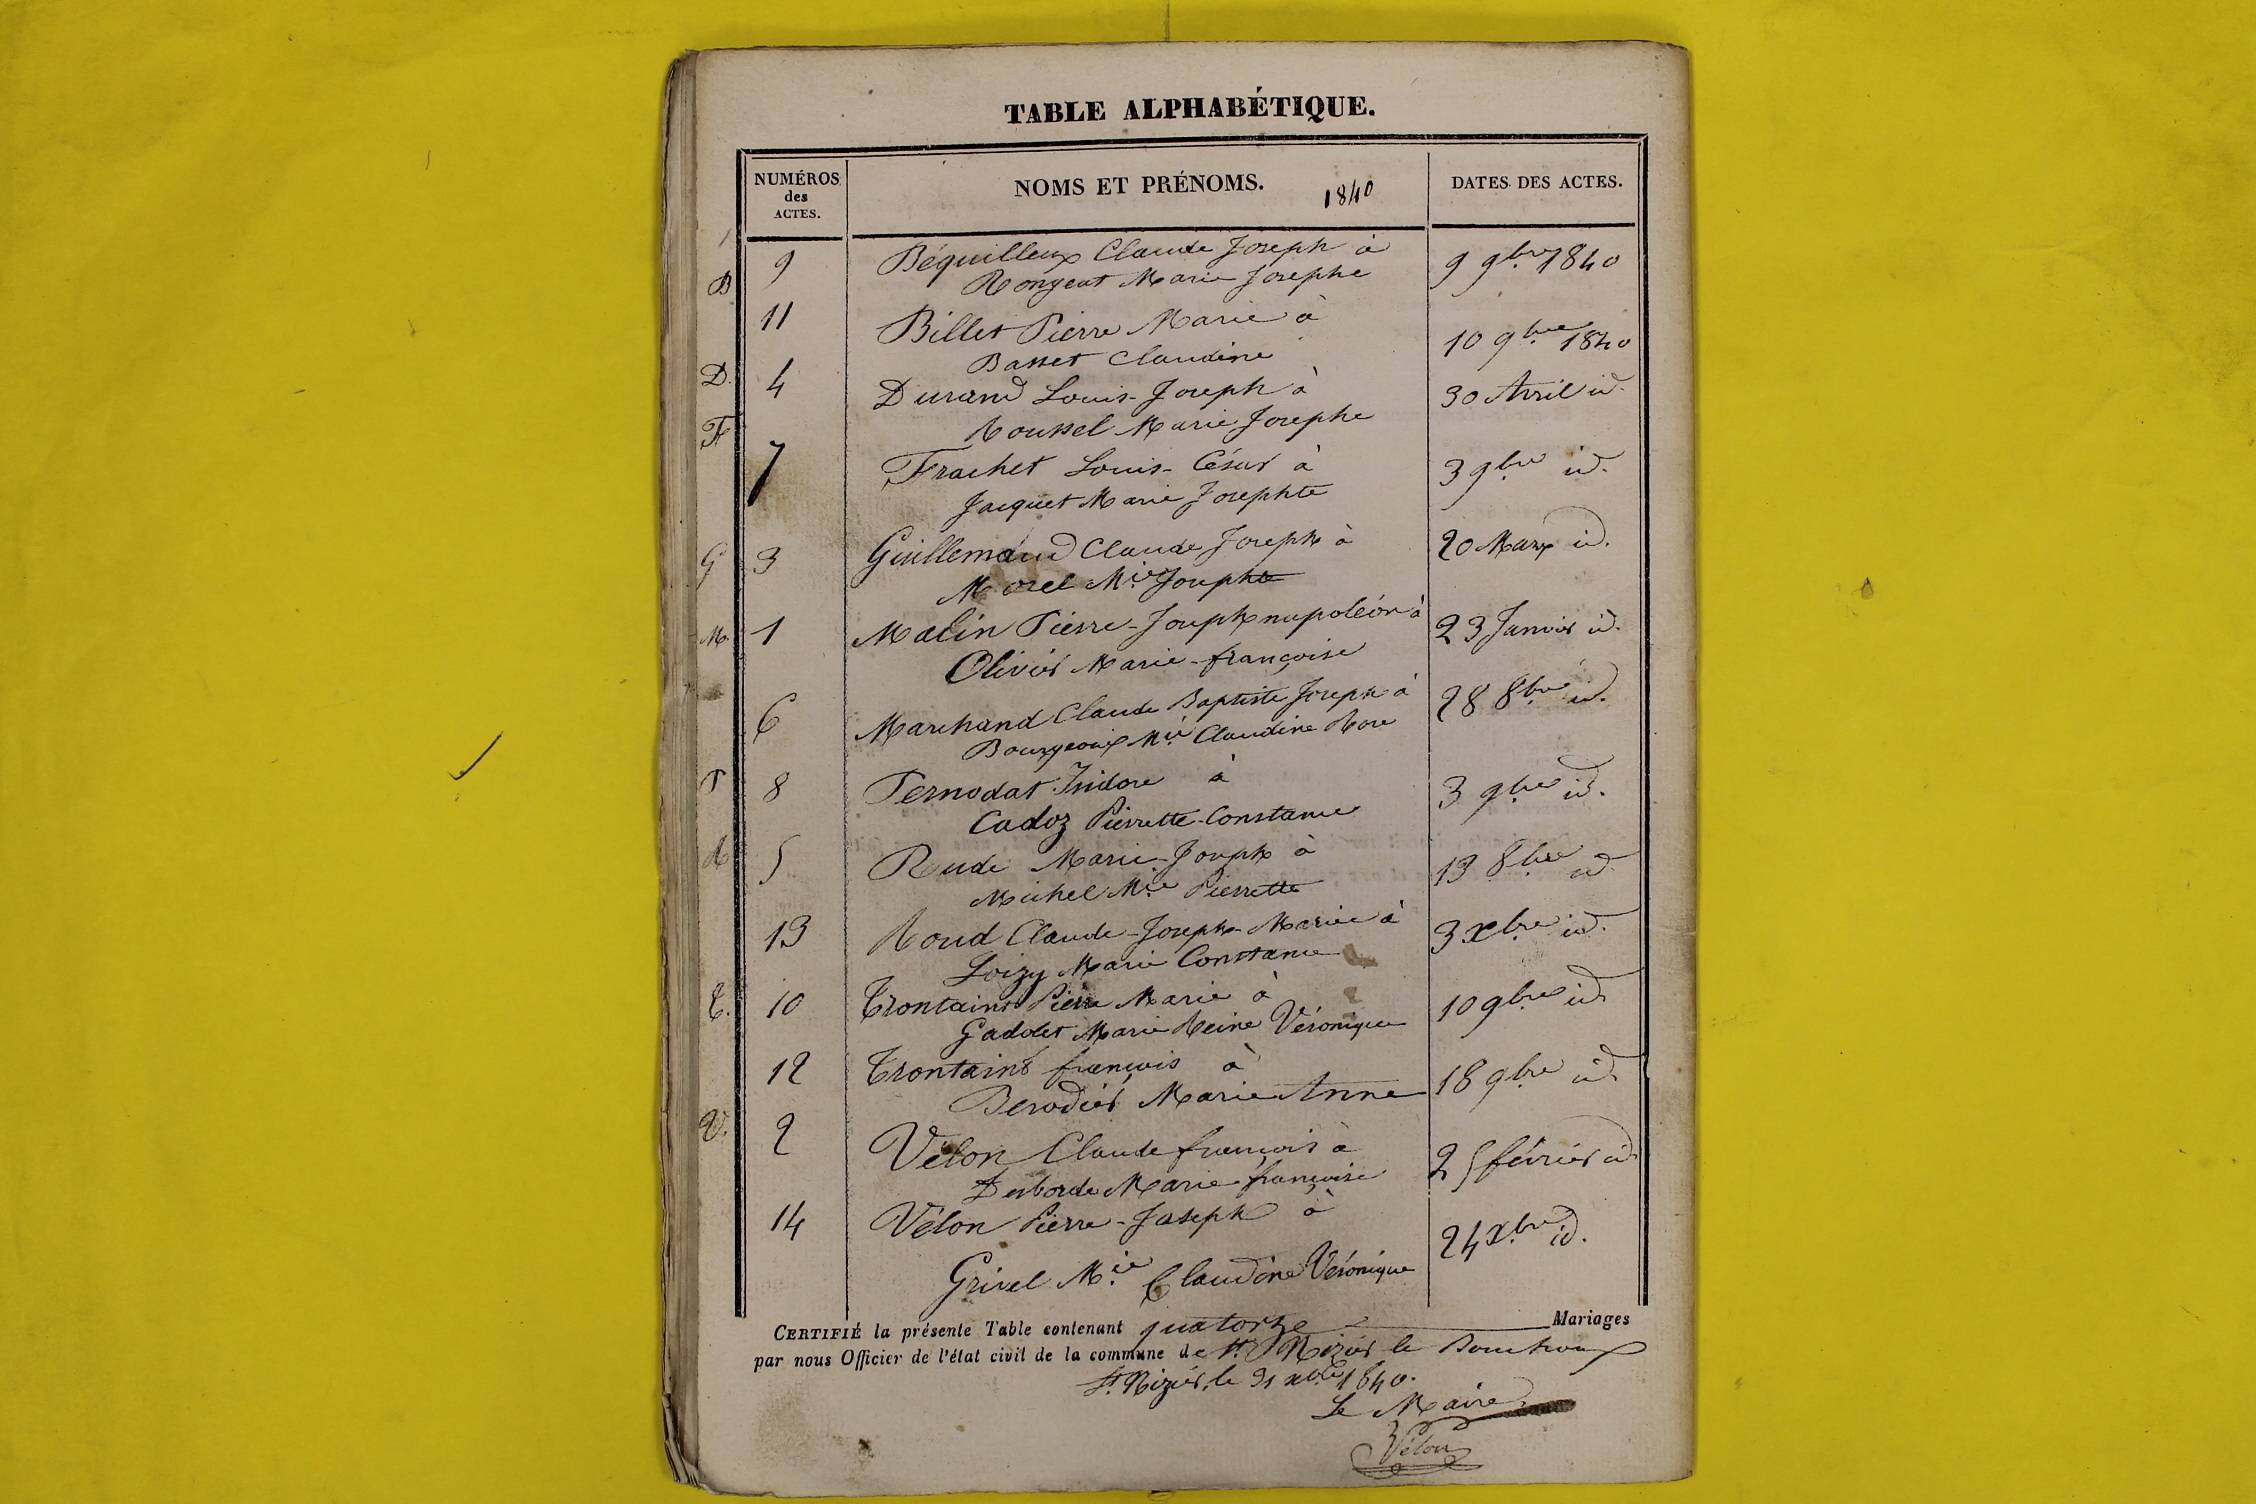 TABLE ALPHABÉTIQUE.
NUMÉROS des ACTES.
NOMS ET PRÉNOMS. 1840
DATES DES ACTES.
B 9 Béquilleux Claude Joseph à 9 9bre 1840
Rongeat Marie Josephe
11 Billet Pierre Marie à 10 9bre 1840
Basset Claudine
D. 4 Durand Louis-Joseph à 30 Avril id.
Roussel Marie Josephe
F 7 Frachet Louis-César à 3 9bre id.
Jacquet Marie Josephte
G 3 Guillemaud Claude Joseph à 20 Mars id.
Morel Mie Josephte
M. 1 Malin Pierre-Joseph napoléon à 23 Janvier id.
Olivier Marie-françoise
6 Marchand Claude Baptiste Joseph à 28 8bre id.
Bourgeois Mie Claudine Rose
P 8 Pernodat Isidore à 3 9bre id.
Cadoz Pierrette-Constance
R 5 Rude Marie-Joseph à 13 8bre id.
Michel Mie Pierrette
13 Roud Claude-Joseph-Marie à 3 xbre id.
Loizy Marie Constance
T. 10 Trontaint Pierre Marie à 10 9bre id.
Gadolet Marie Reine Véronique
12 Trontaint françois à 18 9bre id.
Berodier Marie Anne
V. 2 Vélon Claude françois à 25 février id.
Desborde Marie françoise
14 Vélon Pierre-Joseph à 24 xbre id.
Grivel Mie Claudine Véronique
CERTIFIÉ la présente Table contenant quatorze Mariages
par nous Officier de l'état civil de la commune de St. Nizier le Bouchoux
St. Nizier, le 31 xbre 1840.
Le Maire
Vélon